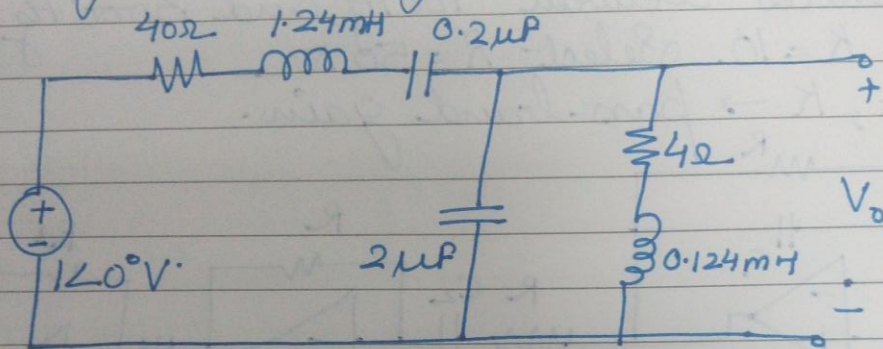 40Ω 1.24mH 0.2μF
+
4Ω
+
-
V₀
1∠0°V.
2μF
0.124mH
-